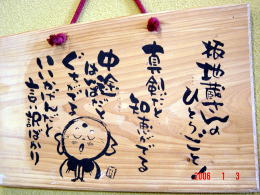 板地蔵さんの
ひとりごと
真剣だと
知恵がでる
中途
はんぱだと
ぐちがでる
いいかげんだと
言い訳ばかり
2006 1 3